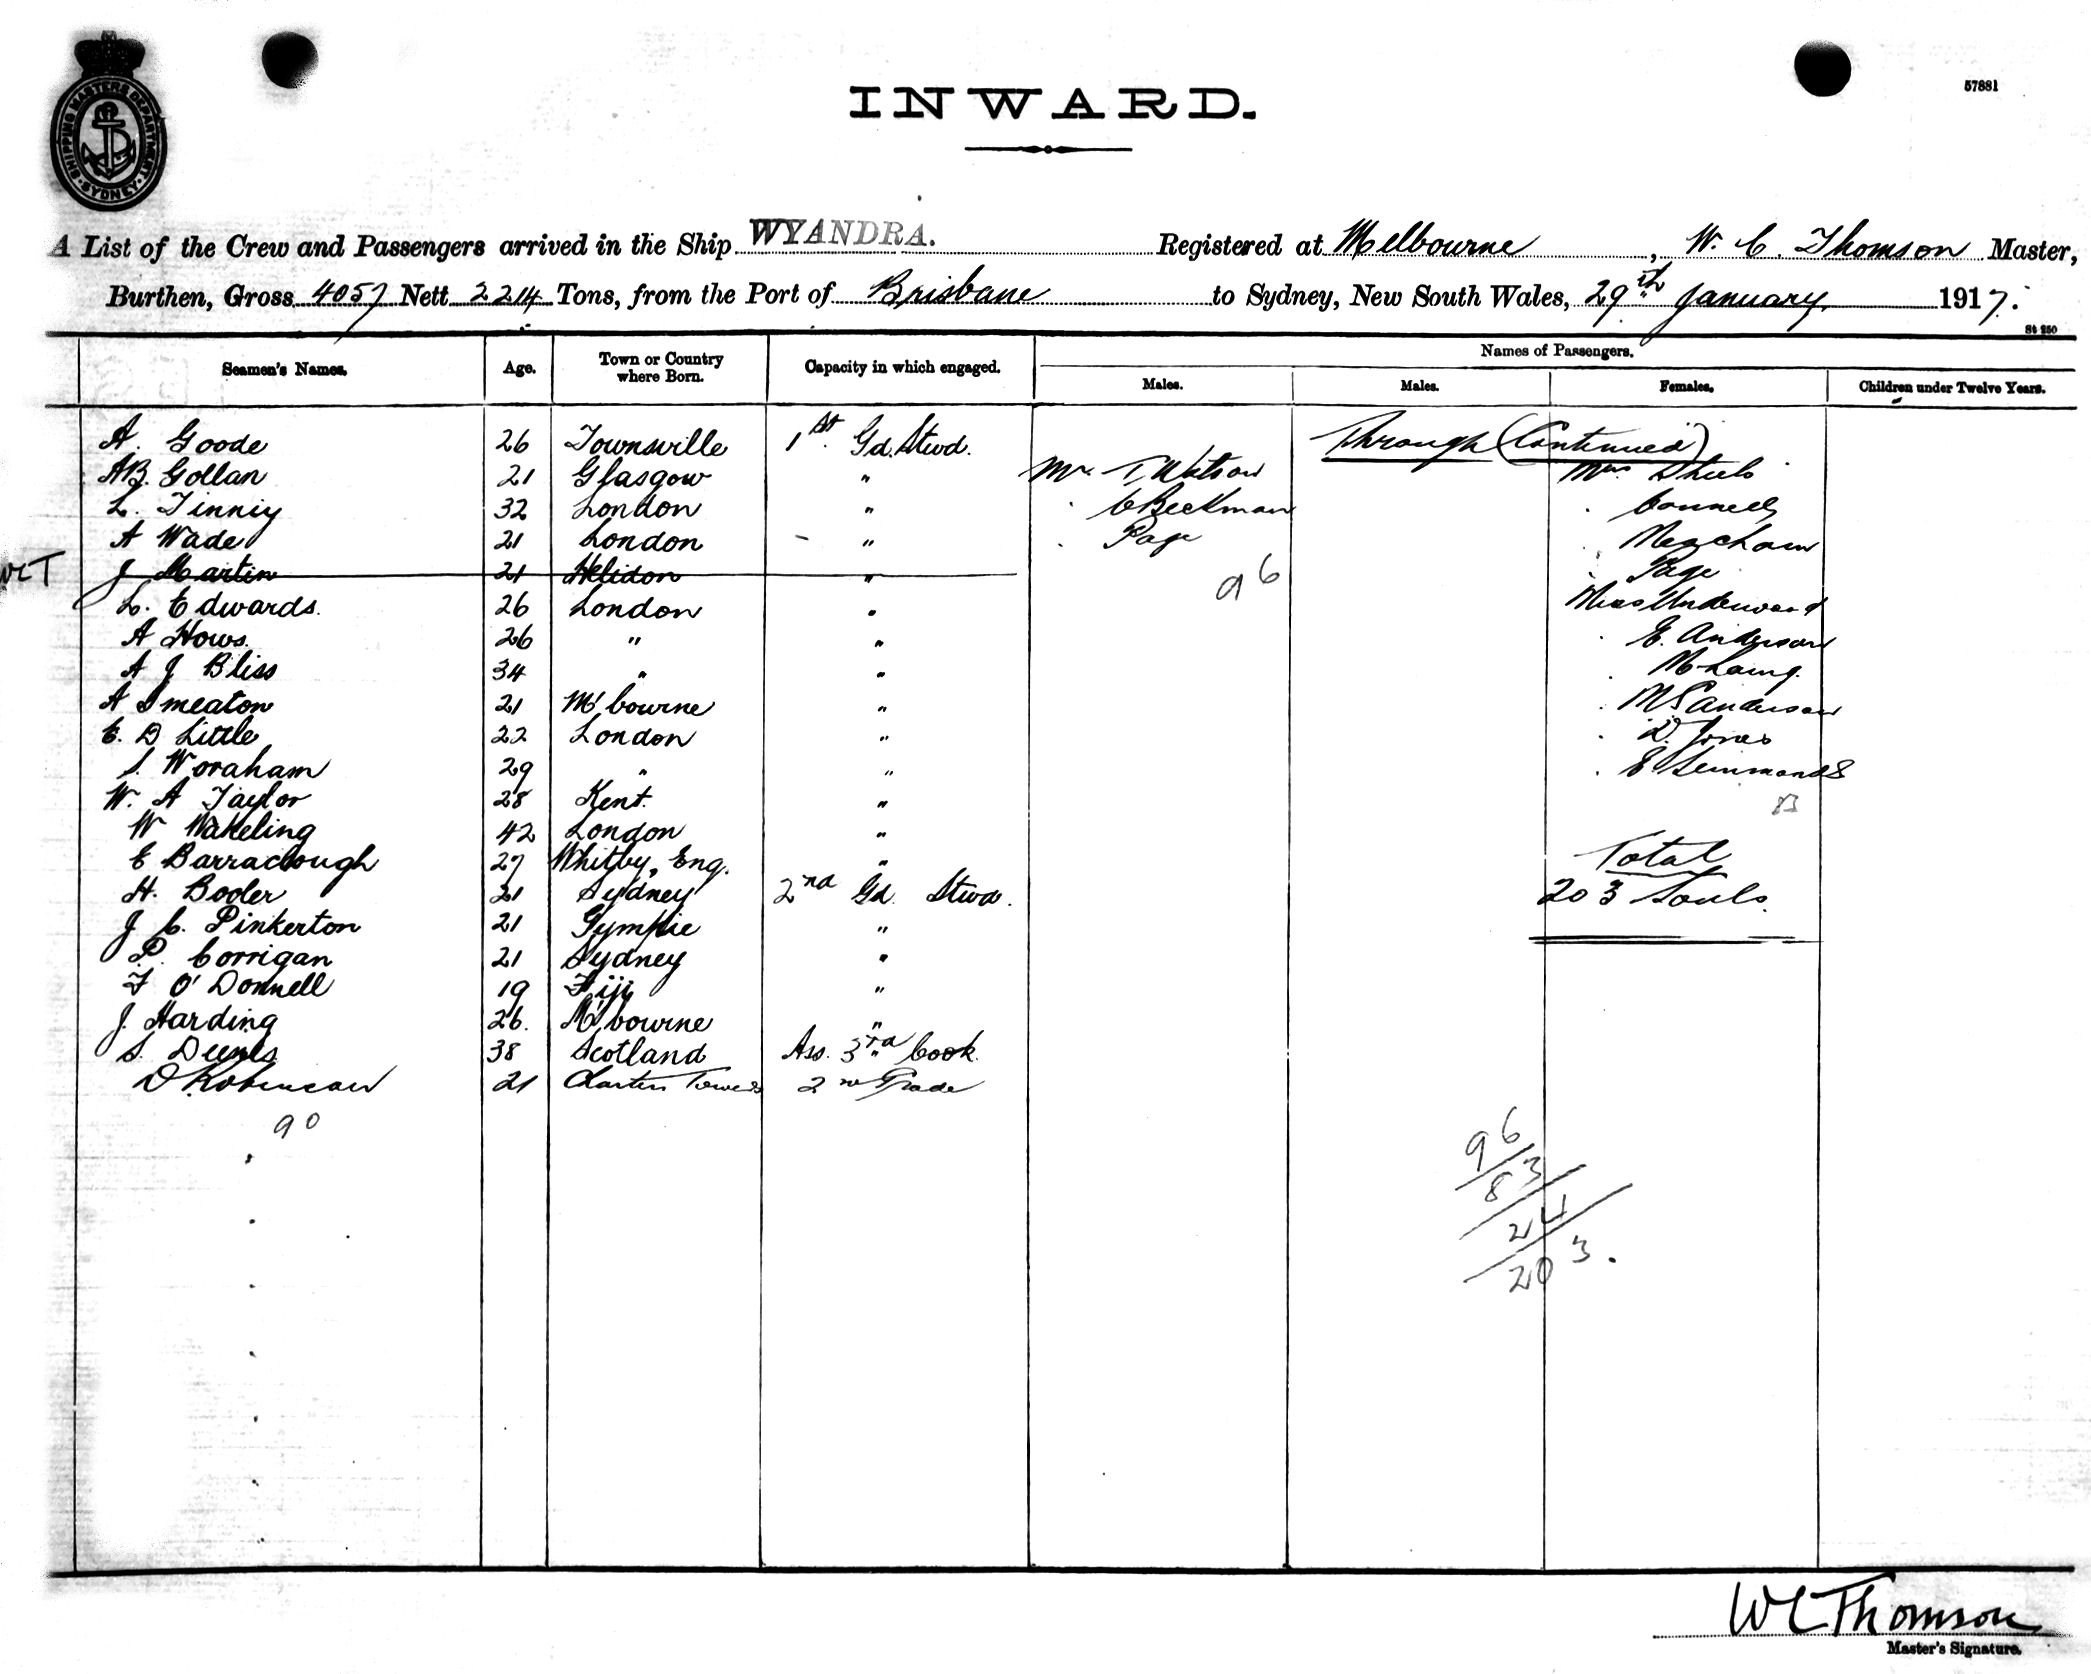 57881
SHIPPING MASTERS DEPARTMENT SYDNEY
INWARD.
A List of the Crew and Passengers arrived in the Ship WYANDRA. Registered at Melbourne, W. C. Thomson Master,
Burthen, Gross 4057 Nett 2214 Tons, from the Port of Brisbane to Sydney, New South Wales, 29th January 1917.
St 250
Seamen's Names. Age. Town or Country where Born. Capacity in which engaged. Names of Passengers.
Males. Males. Females. Children under Twelve Years.
Through (Continued)
A. Goode 26 Townsville 1st Gd. Stwd.
AB. Gollan 21 Glasgow " Mr T. Watson Mrs
L. Tinniy 32 London " C Beckman Connell
A Wade 21 London " Page Meacham
WCT J Martin 21 Helidon " 96 Page
L. Edwards. 26 London " Miss Underwood
A Hows. 26 " " E. Anderson
A J Bliss 34 " " M Laing.
A Smeaton 21 M'bourne " M Sanderson
E. D Little 22 London " D. Jones
S. Woraham 29 " " E. Simmonds
W. A Taylor 28 Kent. " 83
W Wakeling 42 London "
E Barraclough 27 Whitby, Eng. " Total
H. Booler 21 Sydney 2nd Gd. Stwd. 203 Souls.
J C. Pinkerton 21 Gympie "
P. Corrigan 21 Sydney "
F O'Donnell 19 Fiji "
J. Harding 26. M'bourne "
S. 38 Scotland Ass. 3rd Cook.
D Robinson 21 Charters Towers 2nd Grade
90
96
83
24
203.
WCThomson
Master's Signature.